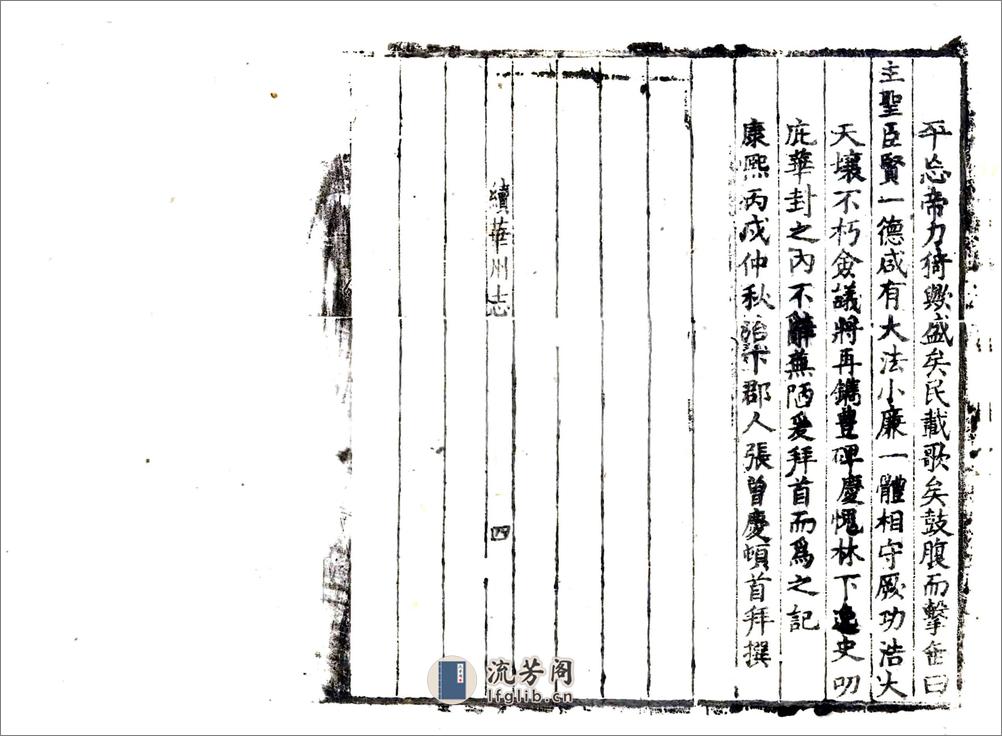 平忘帝力猗歟盛矣民載歌矣鼓腹而擊僉曰
主聖臣賢一德咸有大法小廉一體相守厥功浩大
天壤不朽僉議將再鐫豊碑慶愧林下逸史叨
庇華封之內不辭蕪陋爰拜首而爲之記
康熙丙戌仲秋治下郡人張曽慶頓首拜撰
續華州志
四
流芳阁
lfglib.cn